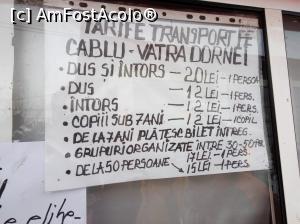 [c] AmFostAcolo®
TARIFE TRANSPORT PE
CABLU - VATRA DORNEI
• DUS ȘI ÎNTORS - 20 LEI - 1 PERSOA
• DUS - 12 LEI - 1 PERS.
• ÎNTORS - 12 LEI - 1 PERS.
• COPIII SUB 7 ANI - 12 LEI - 1 COPIL
• DE LA 7 ANI PLĂTESC BILET ÎNTREG.
• GRUPURI ORGANIZATE ÎNTRE 30-50 PER.
17 LEI - 1 PERS.
• DE LA 50 PERSOANE 15 LEI - 1 PERS.